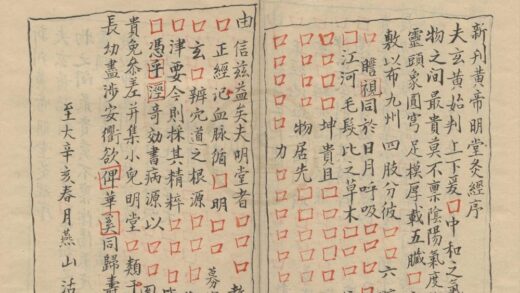 新刊黄帝明堂灸經序
夫玄黄始判上下爰□中和之氣
物之間最貴莫不禀陰陽氣度
靈頭象圓穹足模厚載五臟□
敷以布九州四肢分彼□六
□瞻視同於日月呼吸□□□
□江河毛髮比之草木□□□
□□□□坤貴且□□□□
□□□□物居先□□□□
□□□□力□□□□
由信兹益矣夫明堂者□□□
□正經記血脉循□明□□
玄□辨穴道之根源□□募
□津要今則採其精粹□□
□憑乎□奇効書病源以□
貴免參差并集小兒明堂□類于
長幼盡涉安衢欲俾華奚同歸壽
至大辛亥春月燕山活